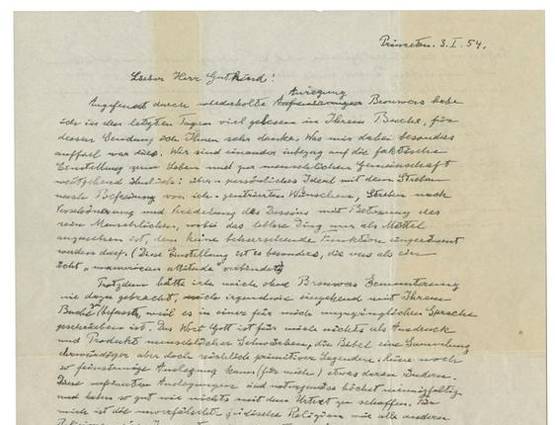 Princeton. 3. I. 54.
Lieber Herr Gutkind!
Anregung
Angefeuert durch wiederholte Brouwers habe
ich in den letzten Tagen viel gelesen in Ihrem Buche, für
dessen Sendung ich Ihnen sehr danke. Was mir dabei besonders
auffiel war dies. Wir sind einander inbezug auf die faktische
Einstellung zum Leben und zur menschlichen Gemeinschaft
weitgehend ähnlich: persönliches Ideal mit dem Streben
nach Befreiung von ich-zentrierten Wünschen, Streben nach
Verschönerung und Veredelung des Daseins mit Betonung des
rein Menschlichen, wobei das leblose Ding nur als Mittel
anzusehen ist, dem keine beherrschende Funktion eingeräumt
werden darf. (Diese Einstellung ist es besonders, die uns als ein
echt "unamerican attitude" verbindet)
Trotzdem hätte ich mich ohne Brouwers Ermunterung
nie dazu gebracht, mich irgendwie eingehend mit Ihrem
Buche zu befassen, weil es in einer für mich unzugänglichen Sprache
geschrieben ist. Das Wort Gott ist für mich nichts als Ausdruck
und Produkt menschlicher Schwächen, die Bibel eine Sammlung
ehrwürdiger aber doch reichlich primitiver Legenden. Keine noch
so feinsinnige Auslegung kann (für mich) etwas daran ändern.
Diese verfeinerten Auslegungen sind naturgemäss höchst mannigfaltig
und haben so gut wie nichts mit dem Urtext zu schaffen. Für
mich ist die unverfälschte jüdische Religion wie alle anderen